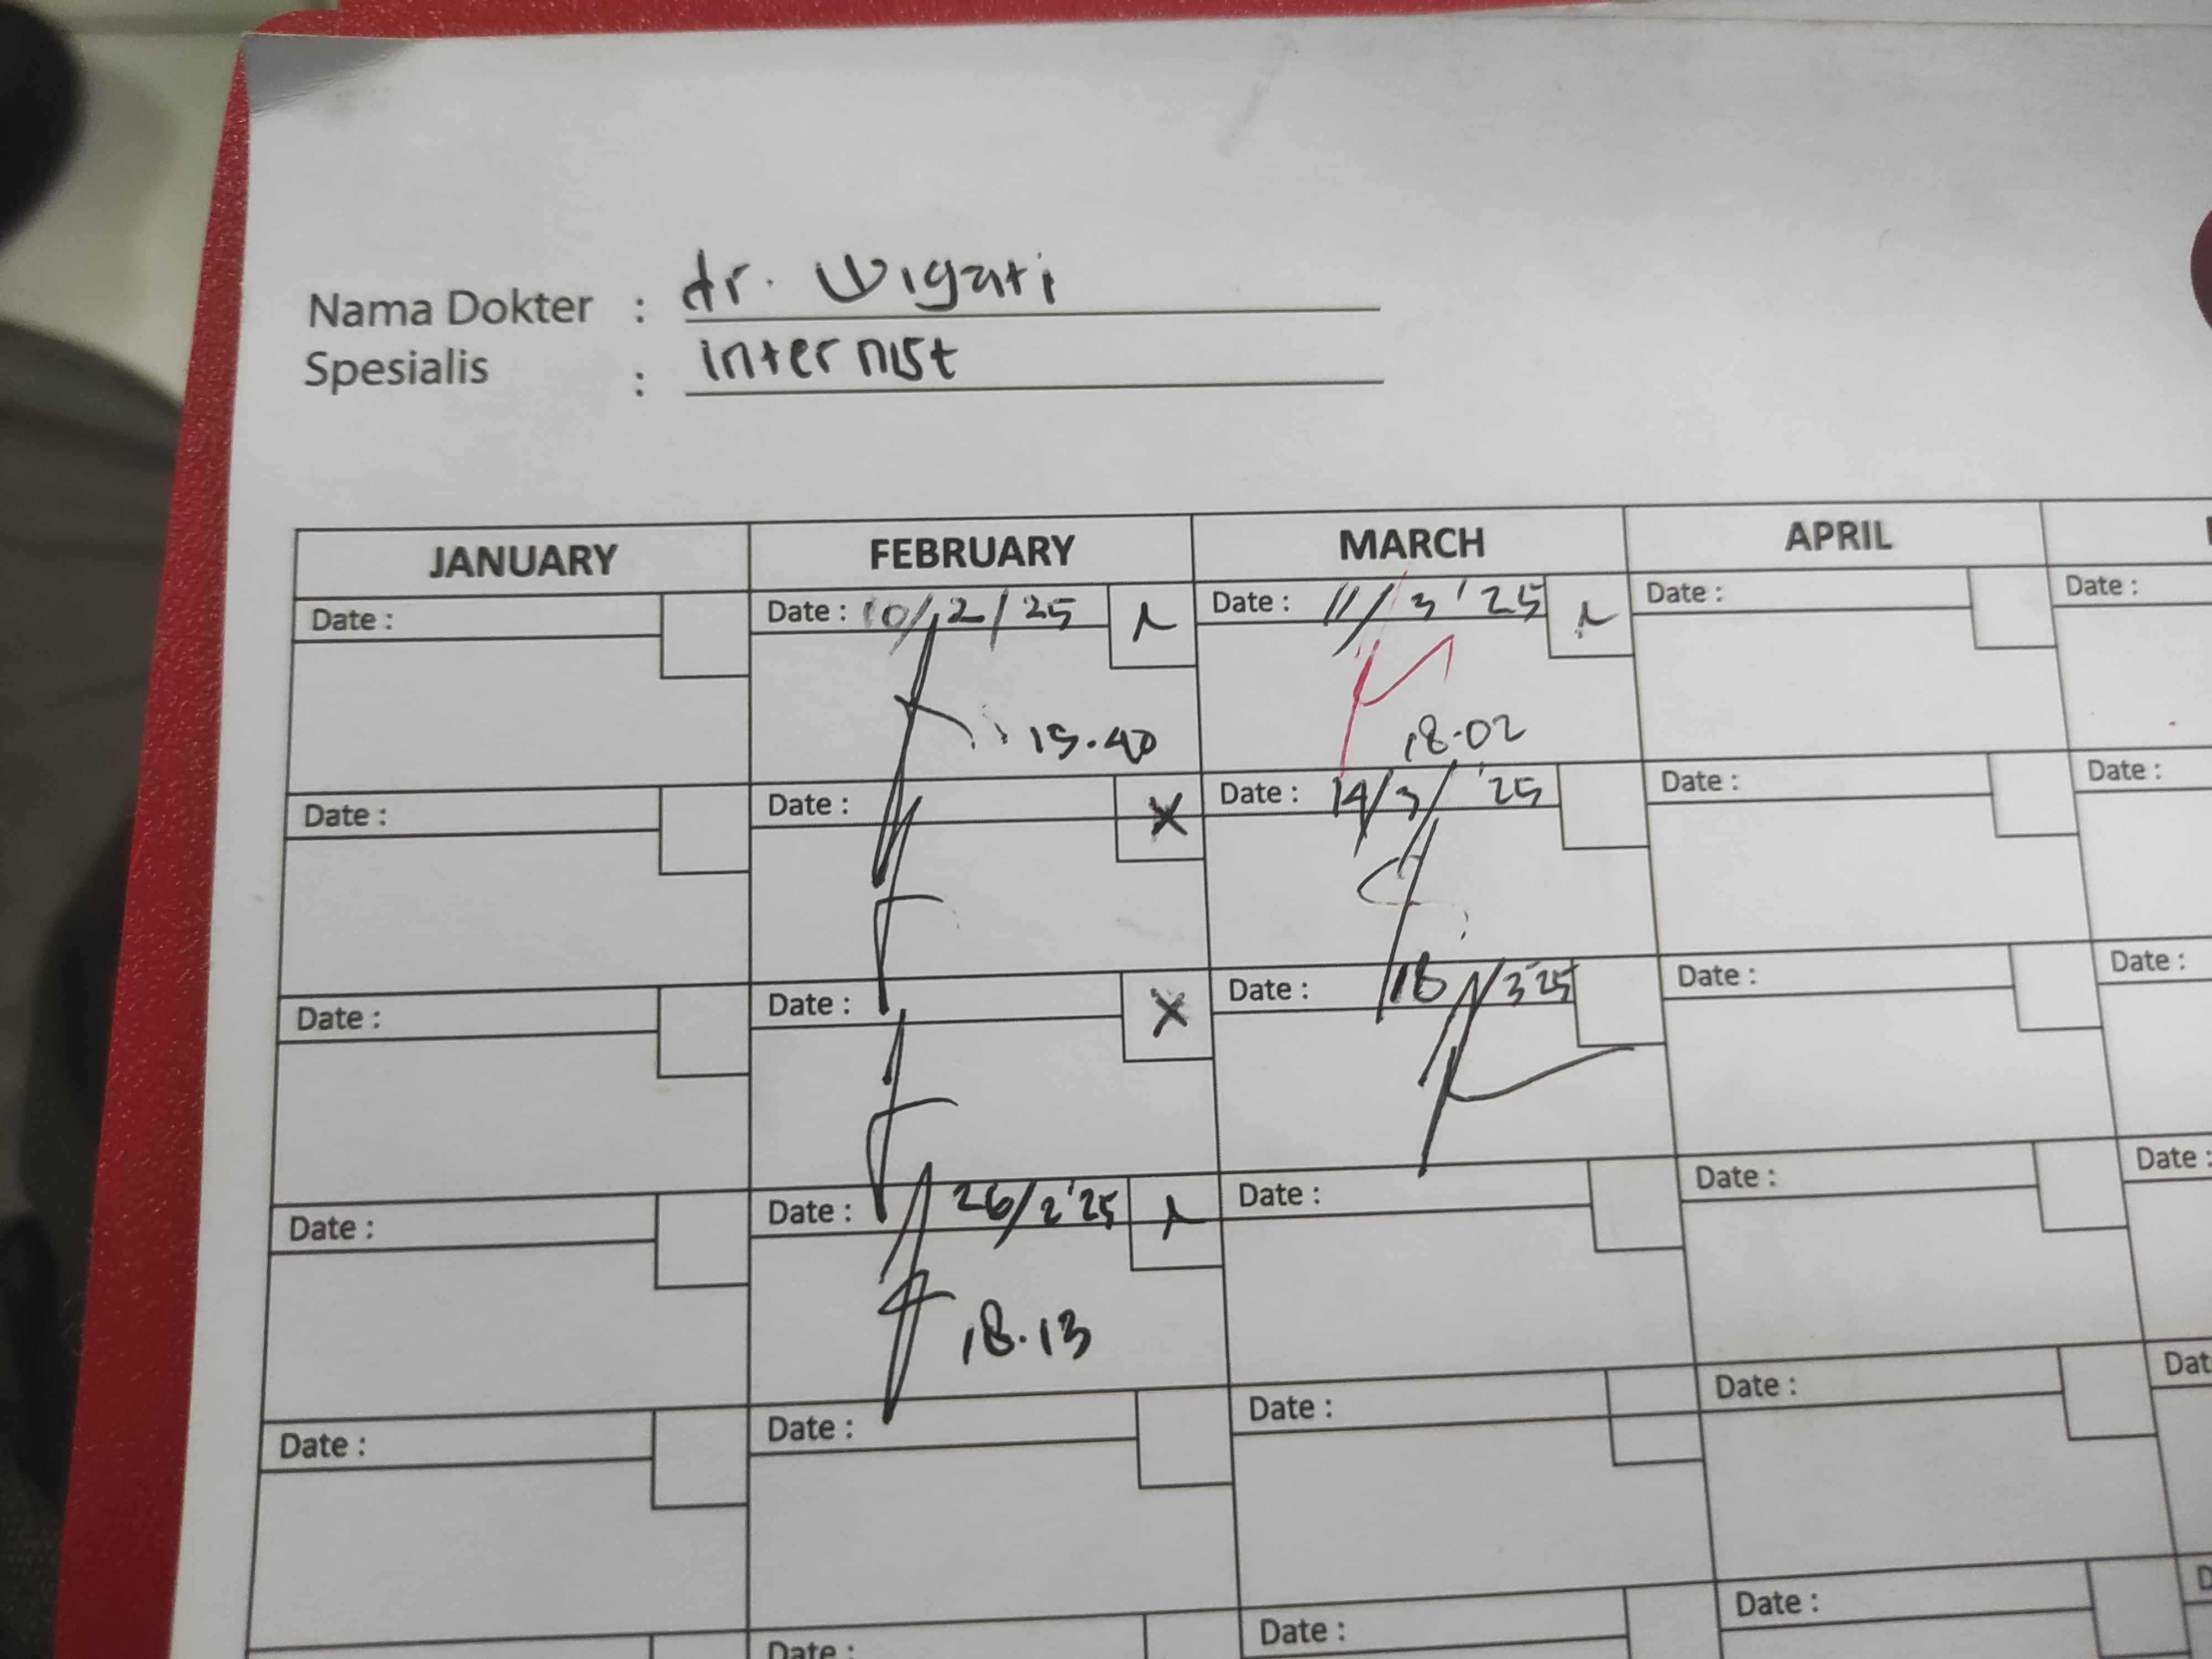 Nama Dokter : dr. Wigati
Spesialis : internist
JANUARY FEBRUARY MARCH APRIL
Date : Date : 10/2/25 Date : 11/3 '25 Date : Date :
15.40 18.02
Date : Date : X Date : 14/3/ '25 Date : Date :
Date : Date : X Date : 18/3 25 Date : Date :
Date : Date : 26/2 '25 Date : Date : Date :
18.13
Date : Date : Date : Date : Dat
Date : Date : Date : D